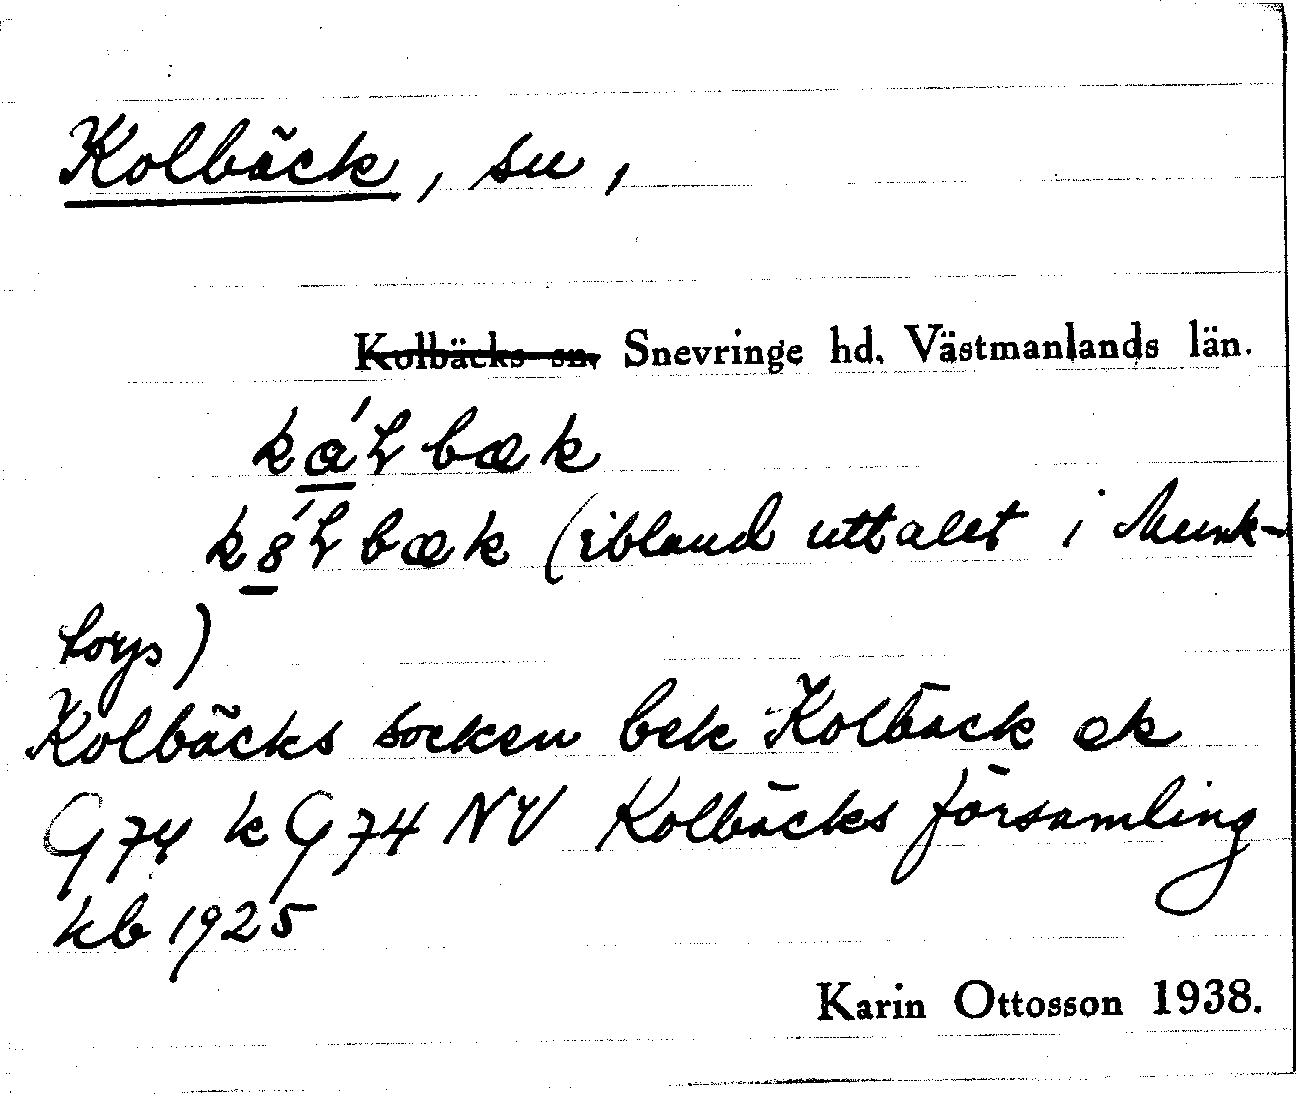 Kolbäck, sn,
Kolbäcks sn. Snevringe hd. Västmanlands län.
bæk
bæk (ibland uttalet i Munk-
torp)
Kolbäcks socken bek Kolbäck ek
G 74 k G 74 NV Kolbäcks församling
kb 1925
Karin Ottosson 1938.